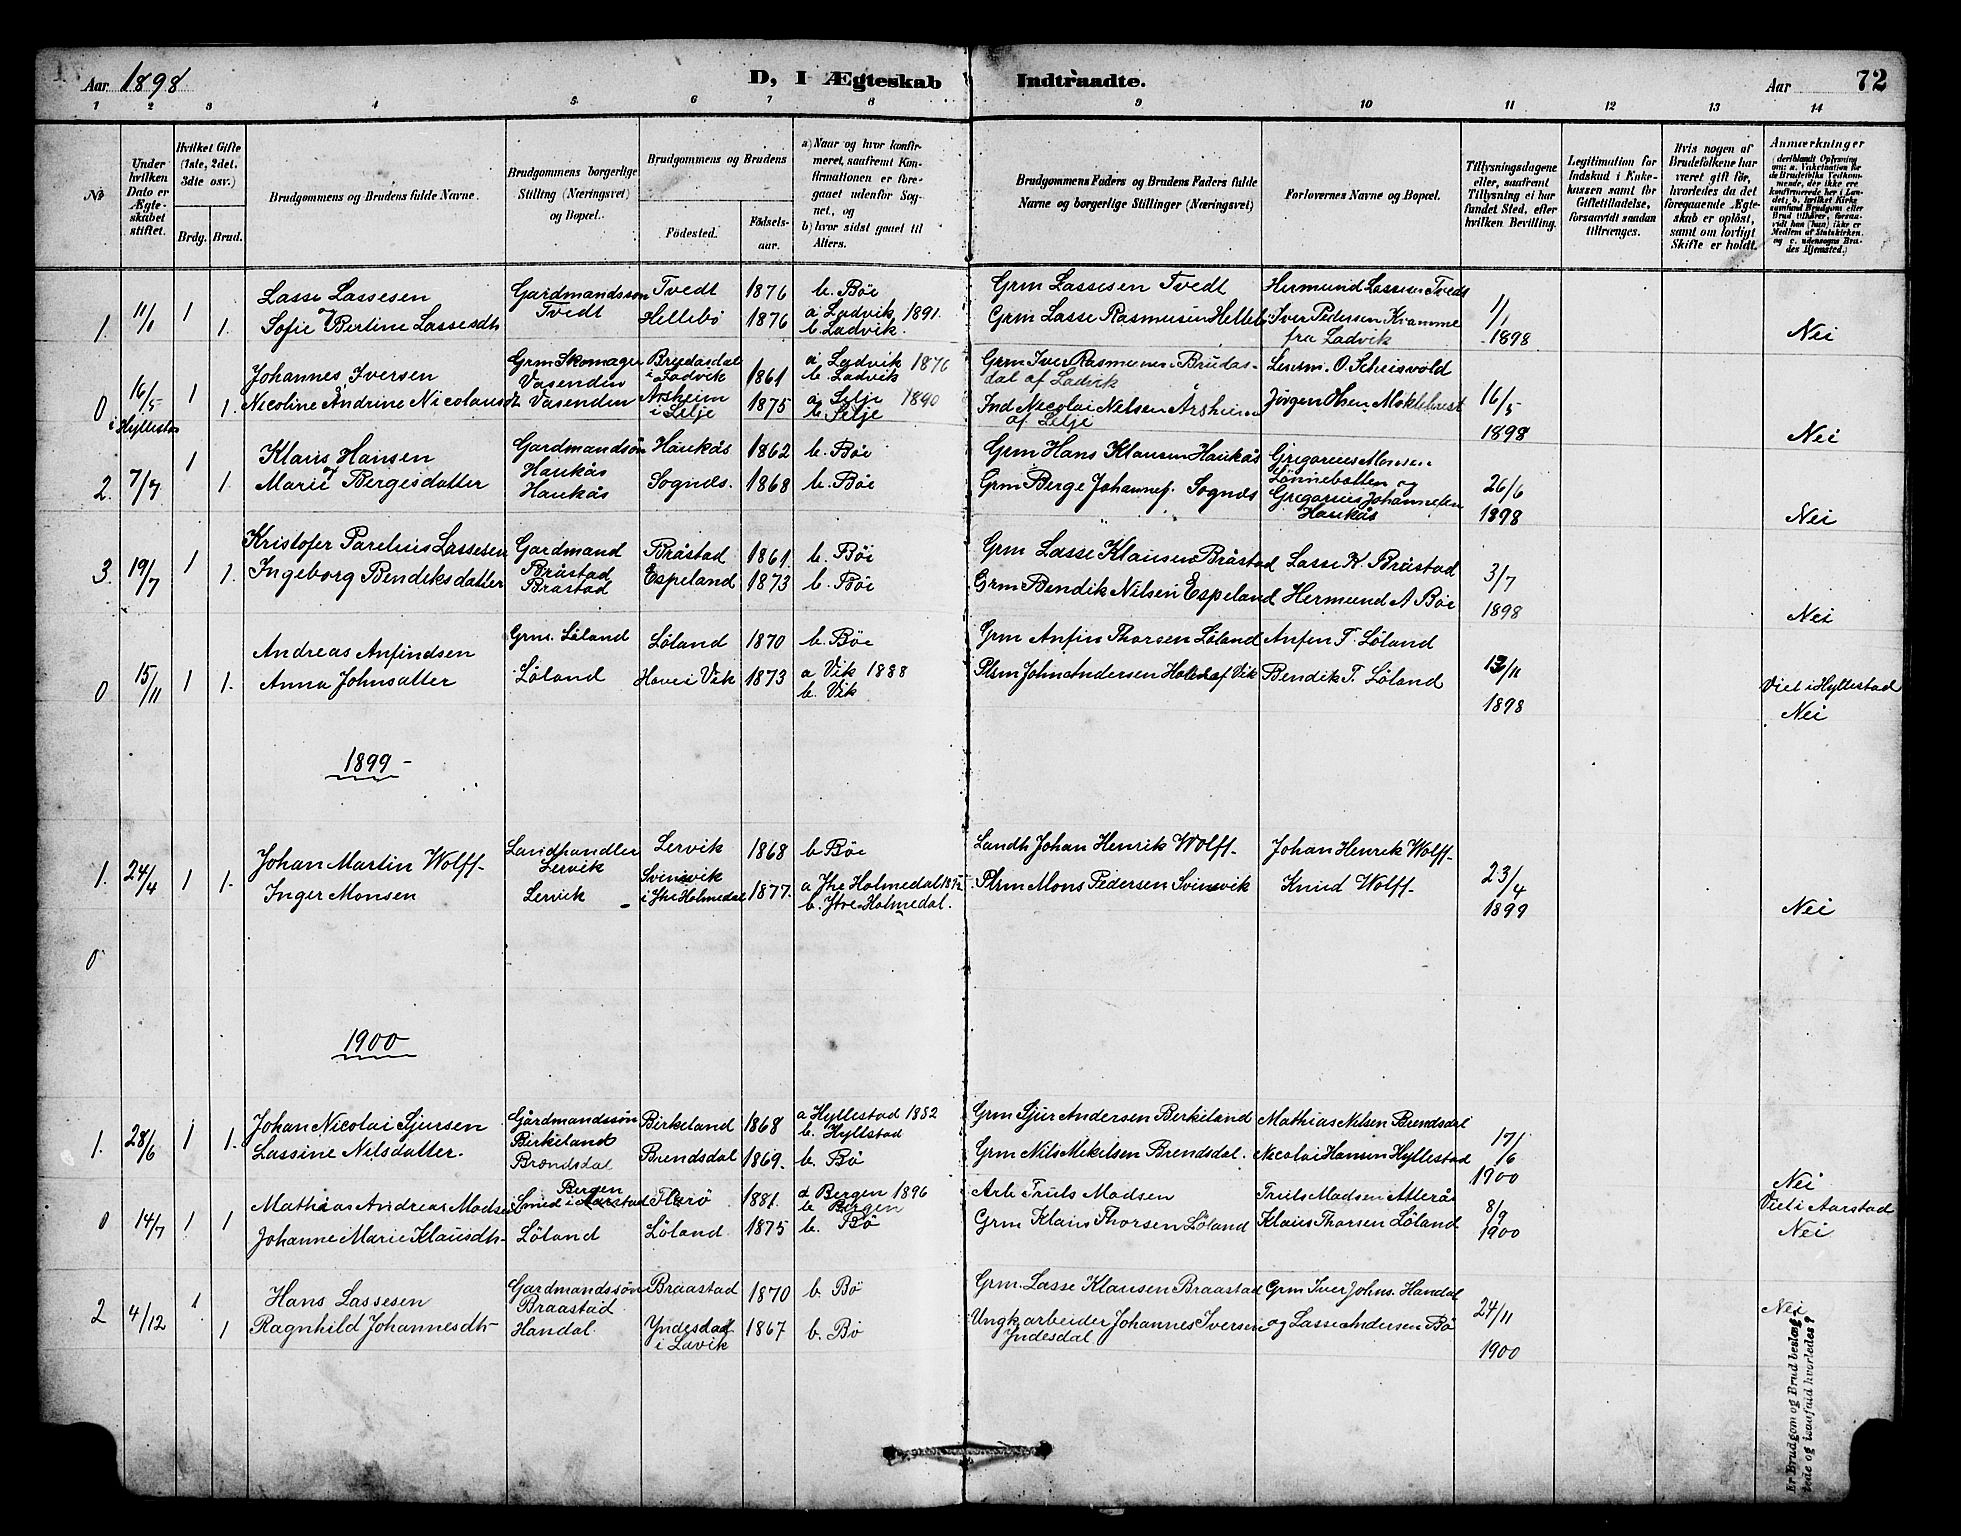 Aar 1898 D, I Ægteskab Indtraadte. Aar 72
1 2 3 4 5 6 7 8 9 10 11 12 13 14
№
Under hvilken Dato er Ægteskabet stiftet.
Hvilket Gifte (1ste, 2det. 3die osv.)
Brdg. Brud.
Brudgommens og Brudens fulde Navne.
Brudgommens borgerlige Stilling (Næringsvei) og Bopæl.
Brudgommens og Brudens
Fødested. Fødselsaar.
a) Naar og hvor konfirmeret, saafremt Konfirmationen er foregaaet udenfor Sognet, og
b) hvor sidst gaaet til Alters.
Brudgommens Faders og Brudens Faders fulde Navne og borgerlige Stillinger (Næringsvei)
Forlovernes Navne og Bopæl.
Tillysningsdagene eller, saafremt Tillysning ei har fundet Sted, efter hvilken Bevilling.
Legitimation for Indskud i Enkekassen samt for Giftetilladelse, forsaavidt saadan tiltrænges.
Hvis nogen af Brudefolkene har været gift før, hvorledes da det foregaaende Ægteskab er opløst, samt om lovligt Skifte er holdt.
Anmærkninger
1. 11/1 1 Lasse Lassesen Gardmandssøn Tvedt 1876 b. Bøe Grm Lassesen Tvedt Hermund Lassesen Tvedt 1/1
1. og Sofie Bertine Lassesdtr Tvedt Hellebø 1876 a Ladvik 1891. b. Ladvik. Grm Lasse Rasmusen Hellebø Iver Pedersen Kramme fra Ladvik 1898 Nei
0 16/5 i Hyllestad 1 Johannes Iversen Grm Skomager Vasenden Brudasdal i Ladvik 1861 a Ladvik 1876 b. Ladvik Grm Iver Rasmusen Brudasdal af Ladvik Lensm. O. Schrisvold
1. Nicoline Andrine Nicolausdt Vasenden Årsheim i Selje 1875 a Selje 1890 b. Selje Ind Nicolai Nelsen Årsheim af Selje Jørgen Olsen Myklebust 16/5 1898 Nei
2. 7/7 1 Klaus Hansen Gardmandssøn Haukås Haukås 1862 b. Bøe Grm Hans Klausen Haukås Grigorius Monsen Lønnebotten og
1. og Marie Bergesdatter Haukås Sognds. 1868 b. Bøe Grm Berge Johannes. Sognds Gregorius Johannesen Haukås 26/6 1898 Nei
3. 19/7 1 Kristofer Parelius Lassesen Gardmand Bråstad Bråstad 1861. b. Bøe Grm Lasse Klausen Bråstad Lasse K. Bråstad 3/7
1. Ingeborg Bendiksdatter Bråstad Espeland 1873 b. Bøe Grm Bendik Nilsen Espeland Hermund A Bøe 1898 Nei
0 15/11 1 Andreas Anfindsen Grm. Løland Løland 1870 b. Bøe Grm Anfin Thorsen Løland Anfin T. Løland
1. Anna Johnsatter Løland Hove i Vik 1873 a Vik 1888 b. Vik Plsm John Andersen af Vik Bendik T. Løland 13/11 1898 Viet i Hyllestad Nei
1899 -
1. 24/4 1 Johan Martin Wolff. Landhandler Lervik Lervik 1868 b Bøe Landh Johan Henrik Wolff. Johan Henrik Wolff.
1. Inger Monsen Lervik Svinsvik i Ytre Holmedal 1877. a Ytre Holmedal b. Ytre Holmedal. Plsm Mons Pedersen Svinsvik Knud Wolff. 23/4 1899 Nei
0
1900
1. 28/6 1 Johan Nicolai Sjursen Gårdmandssøn Birkeland Birkeland 1868 a Hyllestad 1882 b. Hyllstad Grm Sjur Andersen Berkeland Mathias Nelsen Brendsdal
1. Lassine Nelsdatter. Brendsdal Brendsdal 1869. b. Bø Grm Nils Mikelsen Brendsdal. Nicolai Hansen Hyllestad 17/6 1900 Nei
0 14/7 1 Mathias Andreas Madsen Smed i Aarstad Bergen Florø 1881. a Bergen 1896 b Bergen Arb Truls Madsen Truls Madsen 8/9 Viet i Aarstad
1 Johanne Marie Klausdtr Løland Løland 1875 b. Bø Grm Klaus Thorsen Løland Klaus Thorsen Løland 1900 Nei
2 4/12 1 Hans Lassesen Gardmandssøn Braastad Braastad 1870 b. Bø Grm. Lasse Klausen Braastad Grm Iver Johns. Handal
1 Ragnhild Johannesdtr Handal. Yndesdal i Lavik 1867 b. Bø Ungk arbeider Johannes Iversen Yndesdal og Lasse Andersen Bø 24/11 1900 Nei
Er Brudgom og Brud beslægtede og isaafald hvorledes?